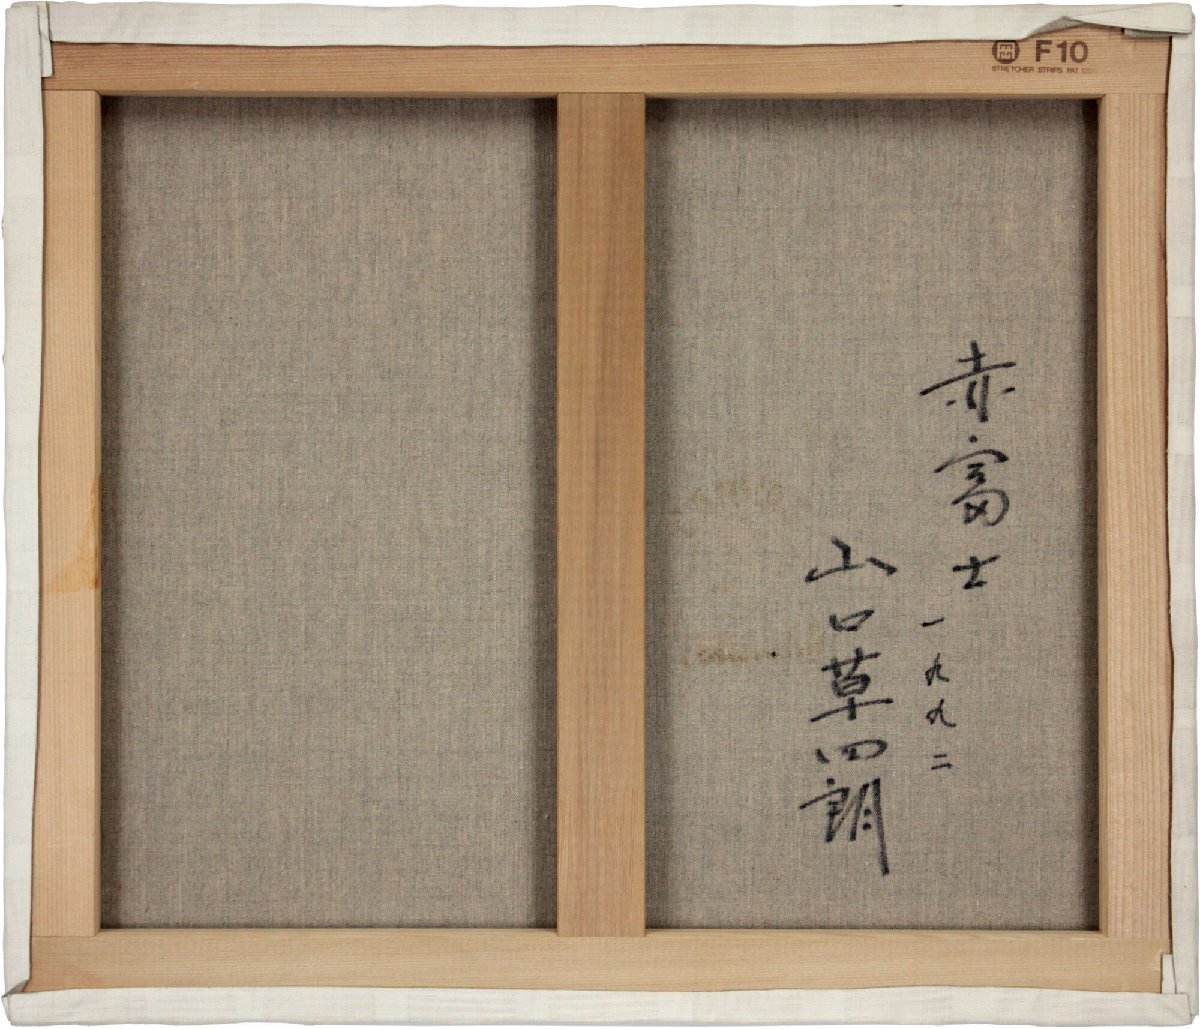 F10
STRETCHER STRIPS PAT.
赤富士
一九九二
山口草四朗